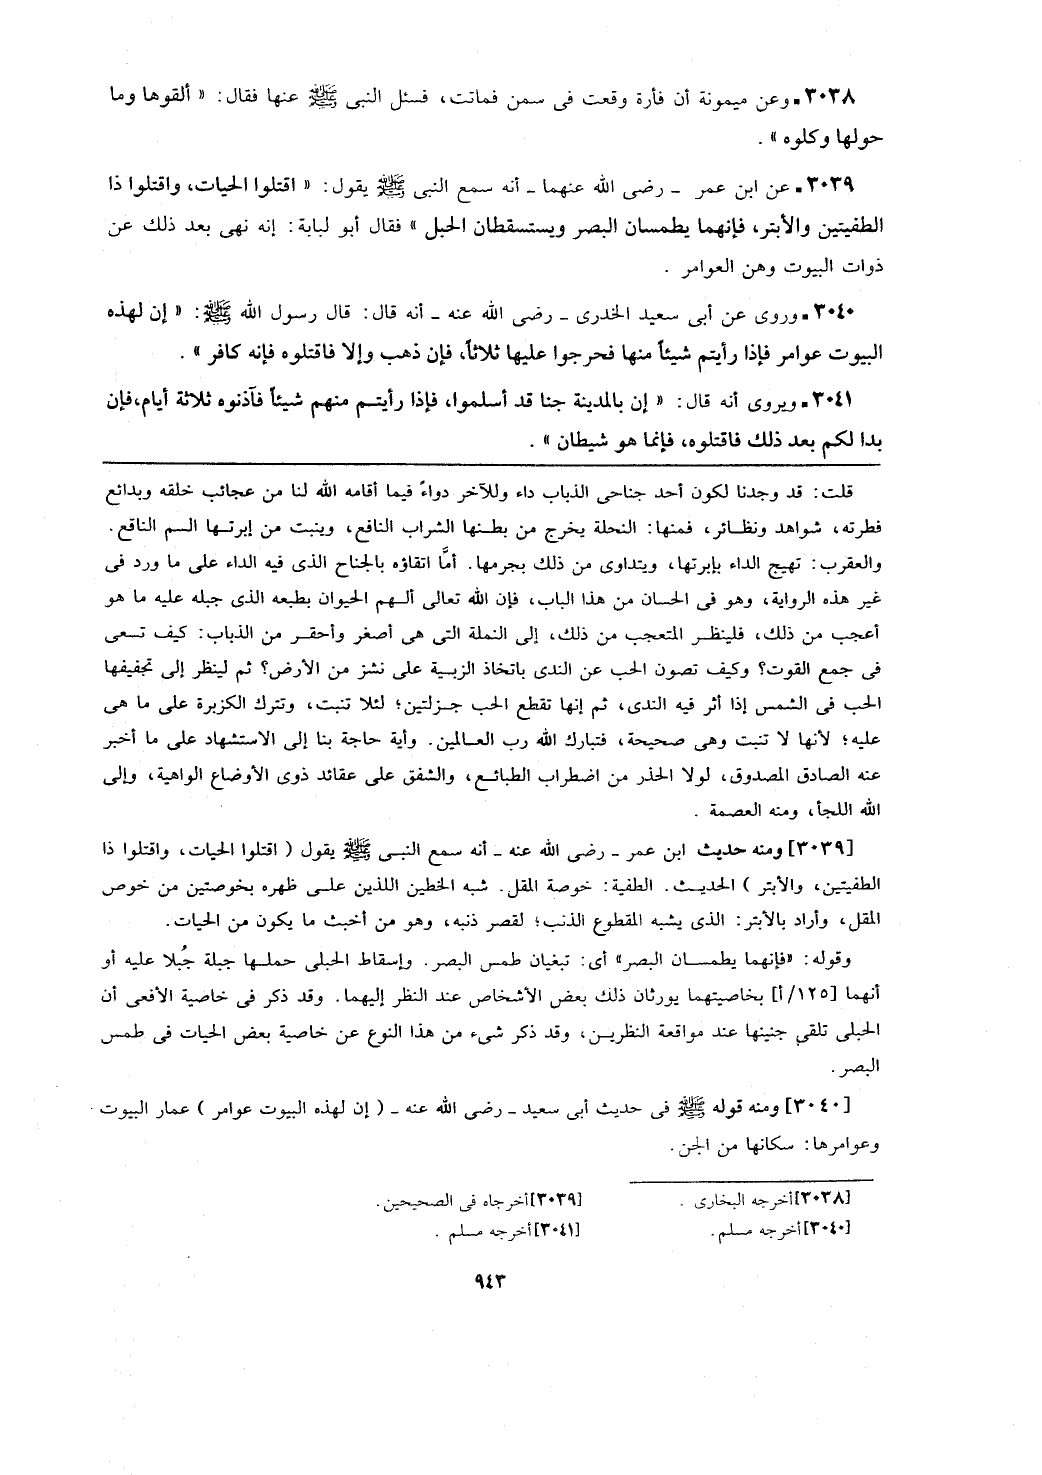 ٣٠٣٨ـ وعن ميمونة أن فأرة وقعت فى سمن فماتت، فسئل النبى ﷺ عنها فقال: « ألقوها وما
حولها وكلوه » .
٣٠٣٩ـ عن ابن عمر ـ رضى الله عنهما ـ أنه سمع النبى ﷺ يقول: « اقتلوا الحيات، واقتلوا ذا
الطفيتين والأبتر، فإنهما يطمسان البصر ويستسقطان الحبل » فقال أبو لبابة: إنه نهى بعد ذلك عن
ذوات البيوت وهن العوامر .
٣٠٤٠ـ وروى عن أبى سعيد الخدرى ـ رضى الله عنه ـ أنه قال: قال رسول الله ﷺ: « إن لهذه
البيوت عوامر فإذا رأيتم شيئاً منها فحرجوا عليها ثلاثاً، فإن ذهب وإلا فاقتلوه فإنه كافر » .
٣٠٤١ـ ويروى أنه قال: « إن بالمدينة جنا قد أسلموا، فإذا رأيتم منهم شيئاً فآذنوه ثلاثة أيام،فإن
بدا لكم بعد ذلك فاقتلوه، فإنما هو شيطان » .
قلت: قد وجدنا لكون أحد جناحى الذباب داء وللآخر دواءً فيما أقامه الله لنا من عجائب خلقه وبدائع
فطرته، شواهد ونظائر، فمنها: النحلة يخرج من بطنها الشراب النافع، وينبت من إبرتها السم الناقع.
والعقرب: تهيج الداء بإبرتها، ويتداوى من ذلك بجرمها. أمَّا اتقاؤه بالجناح الذى فيه الداء على ما ورد فى
غير هذه الرواية، وهو فى الحسان من هذا الباب، فإن الله تعالى ألهم الحيوان بطبعه الذى جبله عليه ما هو
أعجب من ذلك، فلينظر المتعجب من ذلك، إلى النملة التى هى أصغر وأحقر من الذباب: كيف تسعى
فى جمع القوت؟ وكيف تصون الحب عن الندى باتخاذ الزبية على نشز من الأرض؟ ثم لينظر إلى تجفيفها
الحب فى الشمس إذا أثر فيه الندى، ثم إنها تقطع الحب جزلتين؛ لئلا تنبت، وتترك الكزبرة على ما هى
عليه؛ لأنها لا تنبت وهى صحيحة، فتبارك الله رب العالمين. وأية حاجة بنا إلى الاستشهاد على ما أخبر
عنه الصادق المصدوق، لولا الحذر من اضطراب الطبائع، والشفق على عقائد ذوى الأوضاع الواهية، وإلى
الله اللجأ، ومنه العصمة .
[٣٠٣٩] ومنه حديث ابن عمر ـ رضى الله عنه ـ أنه سمع النبى ﷺ يقول ( اقتلوا الحيات، واقتلوا ذا
الطفيتين، والأبتر ) الحديث. الطفية: خوصة المقل. شبه الخطين اللذين على ظهره بخوصتين من خوص
المقل، وأراد بالأبتر: الذى يشبه المقطوع الذنب؛ لقصر ذنبه، وهو من أخبث ما يكون من الحيات.
وقوله: «فإنهما يطمسان البصر» أى: تبغيان طمس البصر. وإسقاط الحبلى حملها جبلة جُبلا عليه أو
أنهما [١٢٥/أ] بخاصيتهما يورثان ذلك بعض الأشخاص عند النظر إليهما. وقد ذكر فى خاصية الأفعى أن
الحبلى تلقى جنينها عند مواقعة النظرين، وقد ذكر شىء من هذا النوع عن خاصية بعض الحيات فى طمس
البصر.
[٣٠٤٠] ومنه قوله ﷺ فى حديث أبى سعيد ـ رضى الله عنه ـ ( إن لهذه البيوت عوامر ) عمار البيوت
وعوامرها: سكانها من الجن.
[٣٠٣٨] أخرجه البخارى . [٣٠٣٩] أخرجاه فى الصحيحين.
[٣٠٤٠] أخرجه مسلم. [٣٠٤١] أخرجه مسلم .
٩٤٣